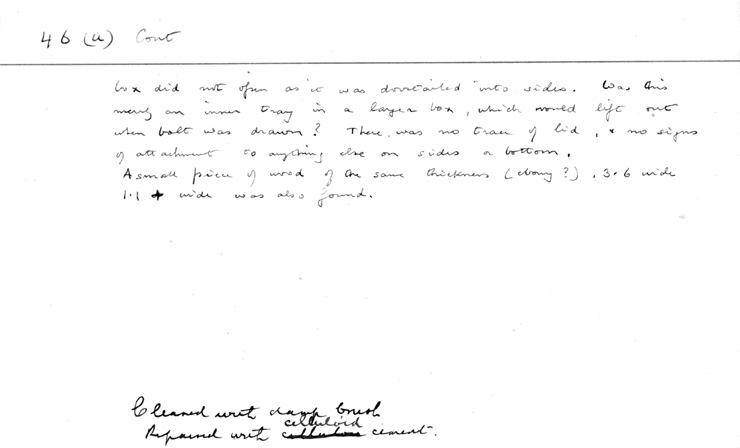 46 (u) Cont
box did not open as it was dovetailed into sides. Was this
merely an inner tray in a larger box, which would lift out
when bolt was drawn? There was no trace of lid, & no signs
of attachment to anything else on sides or bottom.
A small piece of wood of the same thickness (ebony?), 3.6 wide
1.1 + wide was also found.
Cleaned with damp brush
celluloid
Repaired with cement.